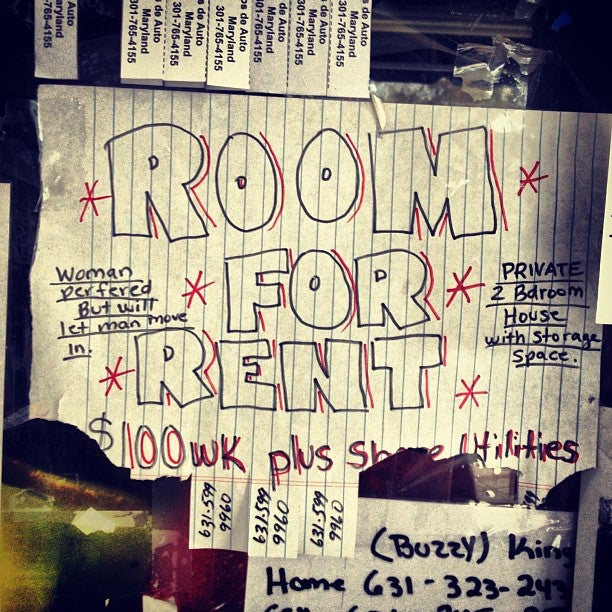 s de Auto
Maryland
301-765-4155
s de Auto
Maryland
301-765-4155
s de Auto
Maryland
301-765-4155
os de Auto
Maryland
301-765-4155
s de Auto
Maryland
301-765-4155
s de Auto
Maryland
301-765-4155
s de Auto
Maryland
301-765-4155
ROOM
FOR
RENT
Woman
perfered
But will
let man move
in.
PRIVATE
2 Bdroom
House
with storage
space.
$100 WK plus Share Utilities
631-599
0966
631599
0966
631-599
(Buzzy) King
Home 631-323-243